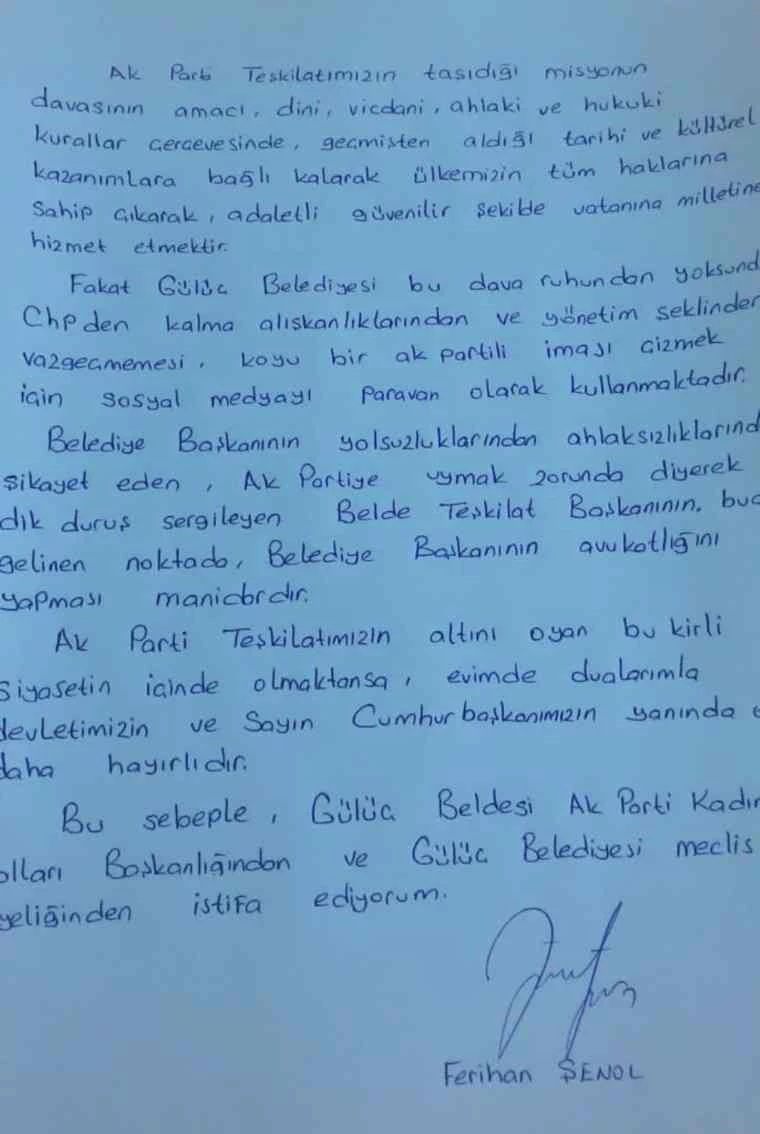 Ak Parti Teskilatımızın tasıdığı misyonun
davasının amacı, dini, vicdani, ahlaki ve hukuki
kurallar cercevesinde, gecmisten aldığı tarihi ve kültürel
kazanımlara bağlı kalarak ülkemizin tüm haklarına
Sahip cıkarak, adaletli güvenilir sekilde vatanına milletine
hizmet etmektir.
Fakat Gülüc Belediyesi bu dava ruhundan yoksund
Chpden kalma alıskanlıklarından ve yönetim seklinden
vazgecmemesi, koyu bir ak partili imajı cizmek
icin sosyal medyayı paravan olarak kullanmaktadır.
Belediye Başkanının yolsuzluklarından ahlaksızlıklarınd
Sikayet eden, Ak Partiye uymak zorunda diyerek
dik duruş sergileyen Belde Teşkilat Başkanının, bug
gelinen noktada, Belediye Başkanının avukatlığını
yapması manidardır.
Ak Parti Teşkilatımızın altını oyan bu kirli
Siyasetin icinde olmaktansa, evimde dualarımla
devletimizin ve Sayın Cumhurbaşkanımızın yanında
daha hayırlıdır.
Bu sebeple, Gülüc Beldesi Ak Parti Kadın
olları Başkanlığından ve Gülüc Belediyesi meclis
yeliğinden istifa ediyorum.
Ferihan ŞENOL